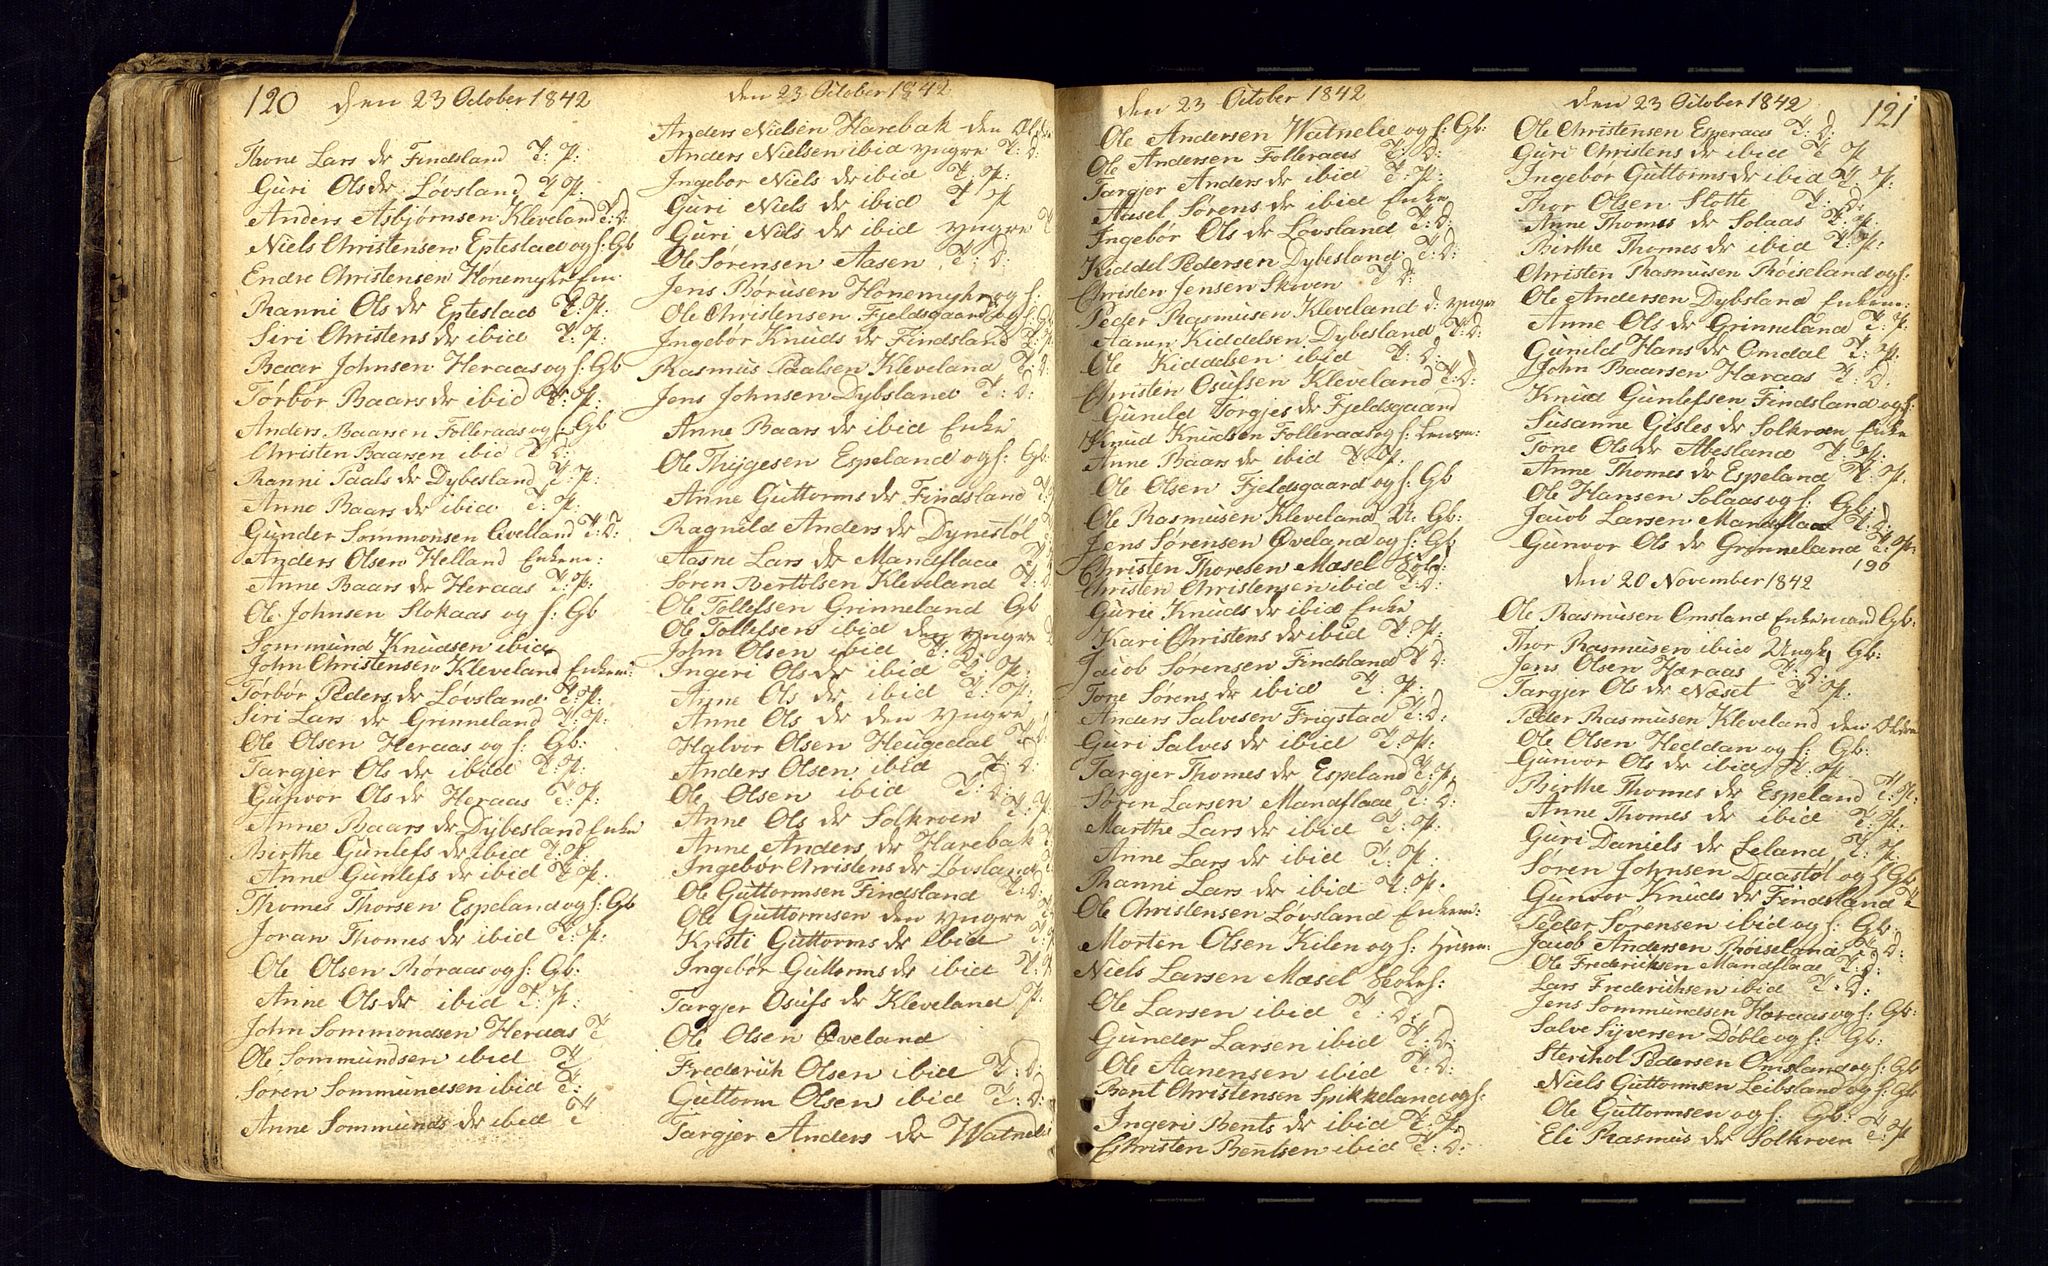 120 den 23 October 1842
Thone Lars dr Findsland T: P:
Guri Ols dr Løvsland T: P:
Anders Asbjørnsen Kleveland T: D:
Niels Christensen Eptestad og f: Gb
Endre Christensen Hønemyhr Em:
Ranni Ols dr Eptestad T: P:
Siri Christens dr ibid T: P:
Baar Johnsen Heraas og f: Gb
Tørbør Baars dr ibid T: P:
Anders Baarsen Folleraas og f: Gb
Christen Baarsen ibid T: D:
Ranni Paals dr Dybesland T: P:
Anne Baars dr ibid T: P:
Gunder Sommonsen Qvelland T: D:
Anders Olsen Helland Enkem:
Anne Baars dr Heraas T: P:
Ole Johnsen Stokaas og f: Gb
Sommund Knudsen ibid
John Christensen Kleveland Enkem:
Tørbør Peders dr Løvsland T: P:
Siri Lars dr Grinneland T: P:
Ole Olsen Heraas og f: Gb:
Targjer Ols dr ibid T: P:
Gunvor Ols dr Heraas T: P:
Anne Baars dr Dybesland Enke
Birthe Gunlefs dr ibid T: P:
Anne Gunlefs dr ibid T: P:
Thomes Thorsen Espeland og f: Gb
Joran Thomes dr ibid T: P:
Ole Olsen Røraas og f: Gb:
Anne Ols dr ibid T: P:
John Sommondsen Heraas T
Ole Sommundsen ibid T
Søren Sommundsen ibid T:
Anne Sommunds dr ibid T
den 23 October 1842
Anders Nielsen Harebak den Ældre
Anders Nielsen ibid yngre T: D:
Ingebør Niels dr ibid T: P:
Guri Niels dr ibid T P
Guri Nils dr ibid yngre T
Ole Sørensen Aasen T: D:
Jens Børusen Hønemyhr og f:
Ole Christensen Fjeldsgaard og f: Gb
Ingebør Knuds dr Findsland T: P:
Rasmus Paalsen Kleveland T: D:
Jens Johnsen Dybsland T: D:
Anne Baars dr ibid Enke
Ole Thygesen Espeland og f: Gb:
Anne Guttorms dr Findsland T:
Ragnild Anders dr Dynestøl
Aasne Lars dr Mandflaae T
Søren Bertelsen Kleveland T:
Ole Tollefsen Grinneland Gb
Ole Tollefsen ibid den yngre
John Olsen ibid T: D:
Ingeri Ols dr ibid T: P:
Anne Ols dr ibid T: P:
Anne Ols dr den yngre
Halvor Olsen Heugedal T D:
Anders Olsen ibid T: D:
Ole Olsen ibid T: D:
Anne Ols dr Solkroen T: P:
Anne Anders dr Harebak T
Ingebør Christens dr Løvsland
Ole Guttormsen Findsland T: D:
Ole Guttormsen den yngre T
Kristi Guttorms dr ibid T:
Ingebør Guttorms dr ibid T:
Targjer Osufs dr Kleveland P:
Ole Olsen Øveland
Frederich Olsen ibid T: D:
Guttorm Olsen ibid T: D:
Targjer Anders dr Watneli
den 23 October 1842
Ole Andersen Watnelie og f: Gb:
Ole Andersen Folleraas T: D:
Targjer Anders dr ibid T: P:
Aasel Sørens dr ibid Enke
Ingebør Ols dr Løvsland T: D:
Kiddel Pedersen Dybesland T: D:
Christen Jensen Skoven T: D:
Peder Rasmusen Kleveland d: yngre
Aanen Kiddelsen Dybesland T: D:
Ole Kiddelsen ibid T: D:
Christen Osufsen Kleveland T: D:
Gunild Torgjes dr Fjeldsgaard
Knud Knudsen Folleraas og f: Lensm:
Anne Baars dr ibid T: P:
Ole Olsen Fjeldsgaard og f: Gb
Ole Rasmusen Kleveland U: Gb:
Jens Sørensen Øveland og f: Gb
Christen Thoresen Mæsel
Christen Christensen ibid T: D:
Gurie Knuds dr ibid Enke
Kari Christens dr ibid T: P:
Jacob Sørensen Findsland T: D:
Tone Sørens dr ibid T: P:
Anders Salvesen Frigstad T: D:
Guri Salves dr ibid T: P:
Targjer Thomes dr Espeland T: P:
Søren Larsen Mandflaae T: D:
Marthe Lars dr ibid T: P:
Anne Lars dr ibid T: P:
Ranni Lars dr ibid T: P:
Ole Christensen Løvsland Enkem:
Morten Olsen Kilen og f: Husm:
Niels Larsen Mæsel Skoleh:
Ole Larsen ibid T: D:
Gunder Larsen ibid T: D:
Ole Aanensen ibid T: D:
Bent Christensen Spikkeland og f:
Ingeri Bents dr ibid T: P:
Christen Bentsen ibid T: D:
den 23 October 1842 121
Ole Christensen Esperaas T: D:
Guri Christens dr ibid T P
Ingebor Guttorms dr ibid T P:
Thor Olsen Slotte T: D:
Anne Thomes dr Solaas T: P:
Birthe Thomes dr ibid T: P:
Christen Rasmusen Røiseland og f:
Ole Andersen Dybsland Enkem:
Anne Ols dr Grinneland T: P:
Gunild Hans dr Omdal T: P:
John Baarsen Haraas T: D:
Knud Gunlefsen Findsland og f:
Susanne Gisles dr Solkroen Enke
Tone Ols dr Abesland T: P:
Anne Thomes dr Espeland T: P:
Ole Hansen Solaas og f: Gb:
Jacob Larsen Mandflaae T: D:
Gunvor Ols dr Grinneland T: P:
190
den 20 November 1842
Ole Rasmusen Omsland Enkemand Gb:
Thor Rasmusen ibid Ungk: Gb:
Jens Olsen Haraas T: D:
Targjer Ols dr Næset T: P:
Peder Rasmusen Kleveland den Ældre
Ole Olsen Heddan og f: Gb:
Gunvor Ols dr ibid T: P:
Birthe Thomes dr Espeland T: P:
Anne Thomes dr ibid T: P:
Guri Daniels dr Leland T: P:
Søren Johnsen Daastøl og f: Gb
Gunvor Knuds dr Findsland T
Peder Sørensen ibid og f: Gb:
Jacob Andersen Røiseland T: D:
Ole Frederichsen Mandflaae T: D:
Lars Frederichsen ibid T: D:
Jens Sommundsen Haraas og f: Gb:
Salve Syversen Døble og f: Gb:
Sterchol Pedersen Omsland og f: Gb
Niels Guttormsen Leibsland og f: Gb
Ole Guttormsen og f: Gb:
Eli Rasmus dr Solkroen T: P